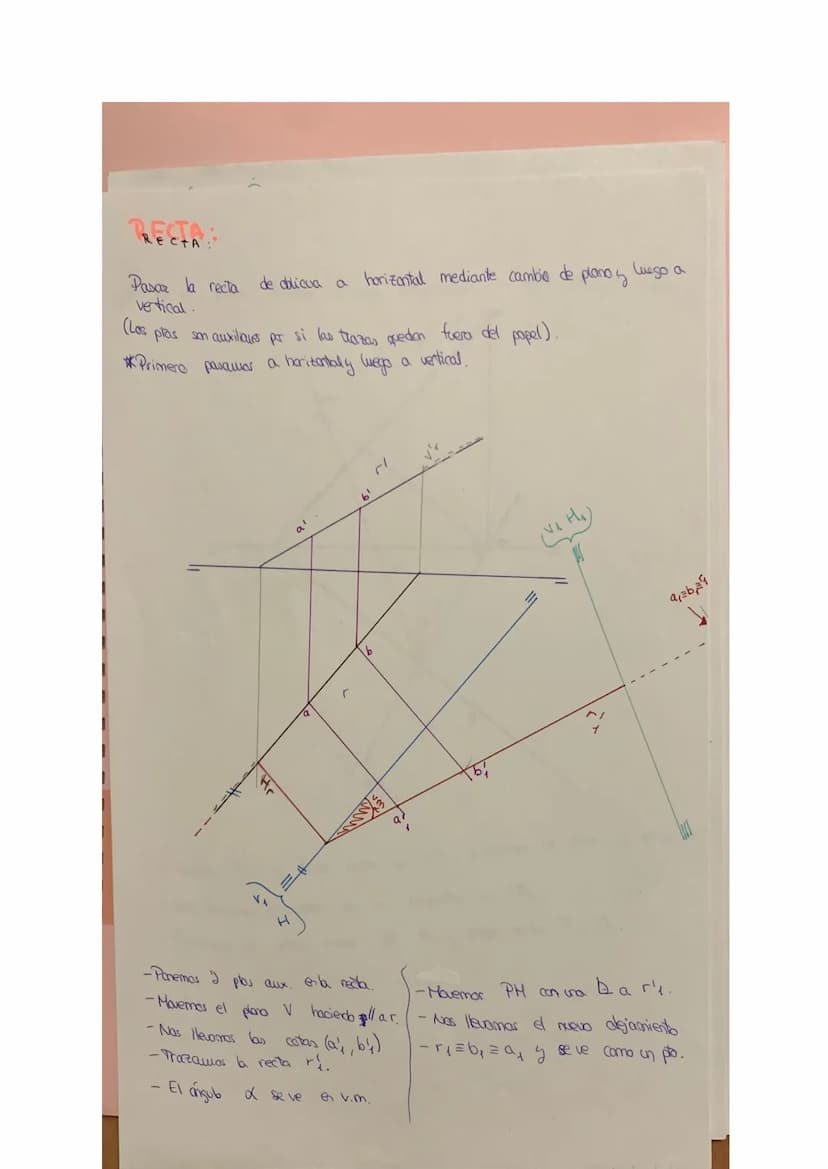 RECTA:
RECTA:
Pasar la recta de oblicua a horizontal mediante cambio de plano y luego a
vertical.
(Los ptos son auxiliares por si las trazas quedan fuera del papel).
*Primero pasamos a horizontal y luego a vertical.
r'
V'r
b'
a'
V1 H1
a1≡b1≡r1
b
r
a
Hr
r'1
b'1
a'1
V1
H
-Ponemos 2 ptos aux. en la recta.
-Movemos el plano V haciendo // a r.
-Nos llevamos las cotas (a'1, b'1)
-Trazamos la recta r'1.
- El ángulo α se ve en v.m.
-Movemos PH con una ⊥ a r'1.
- Nos llevamos el nuevo alejamiento
- r1 ≡ b1 ≡ a1 y se ve como un pto.